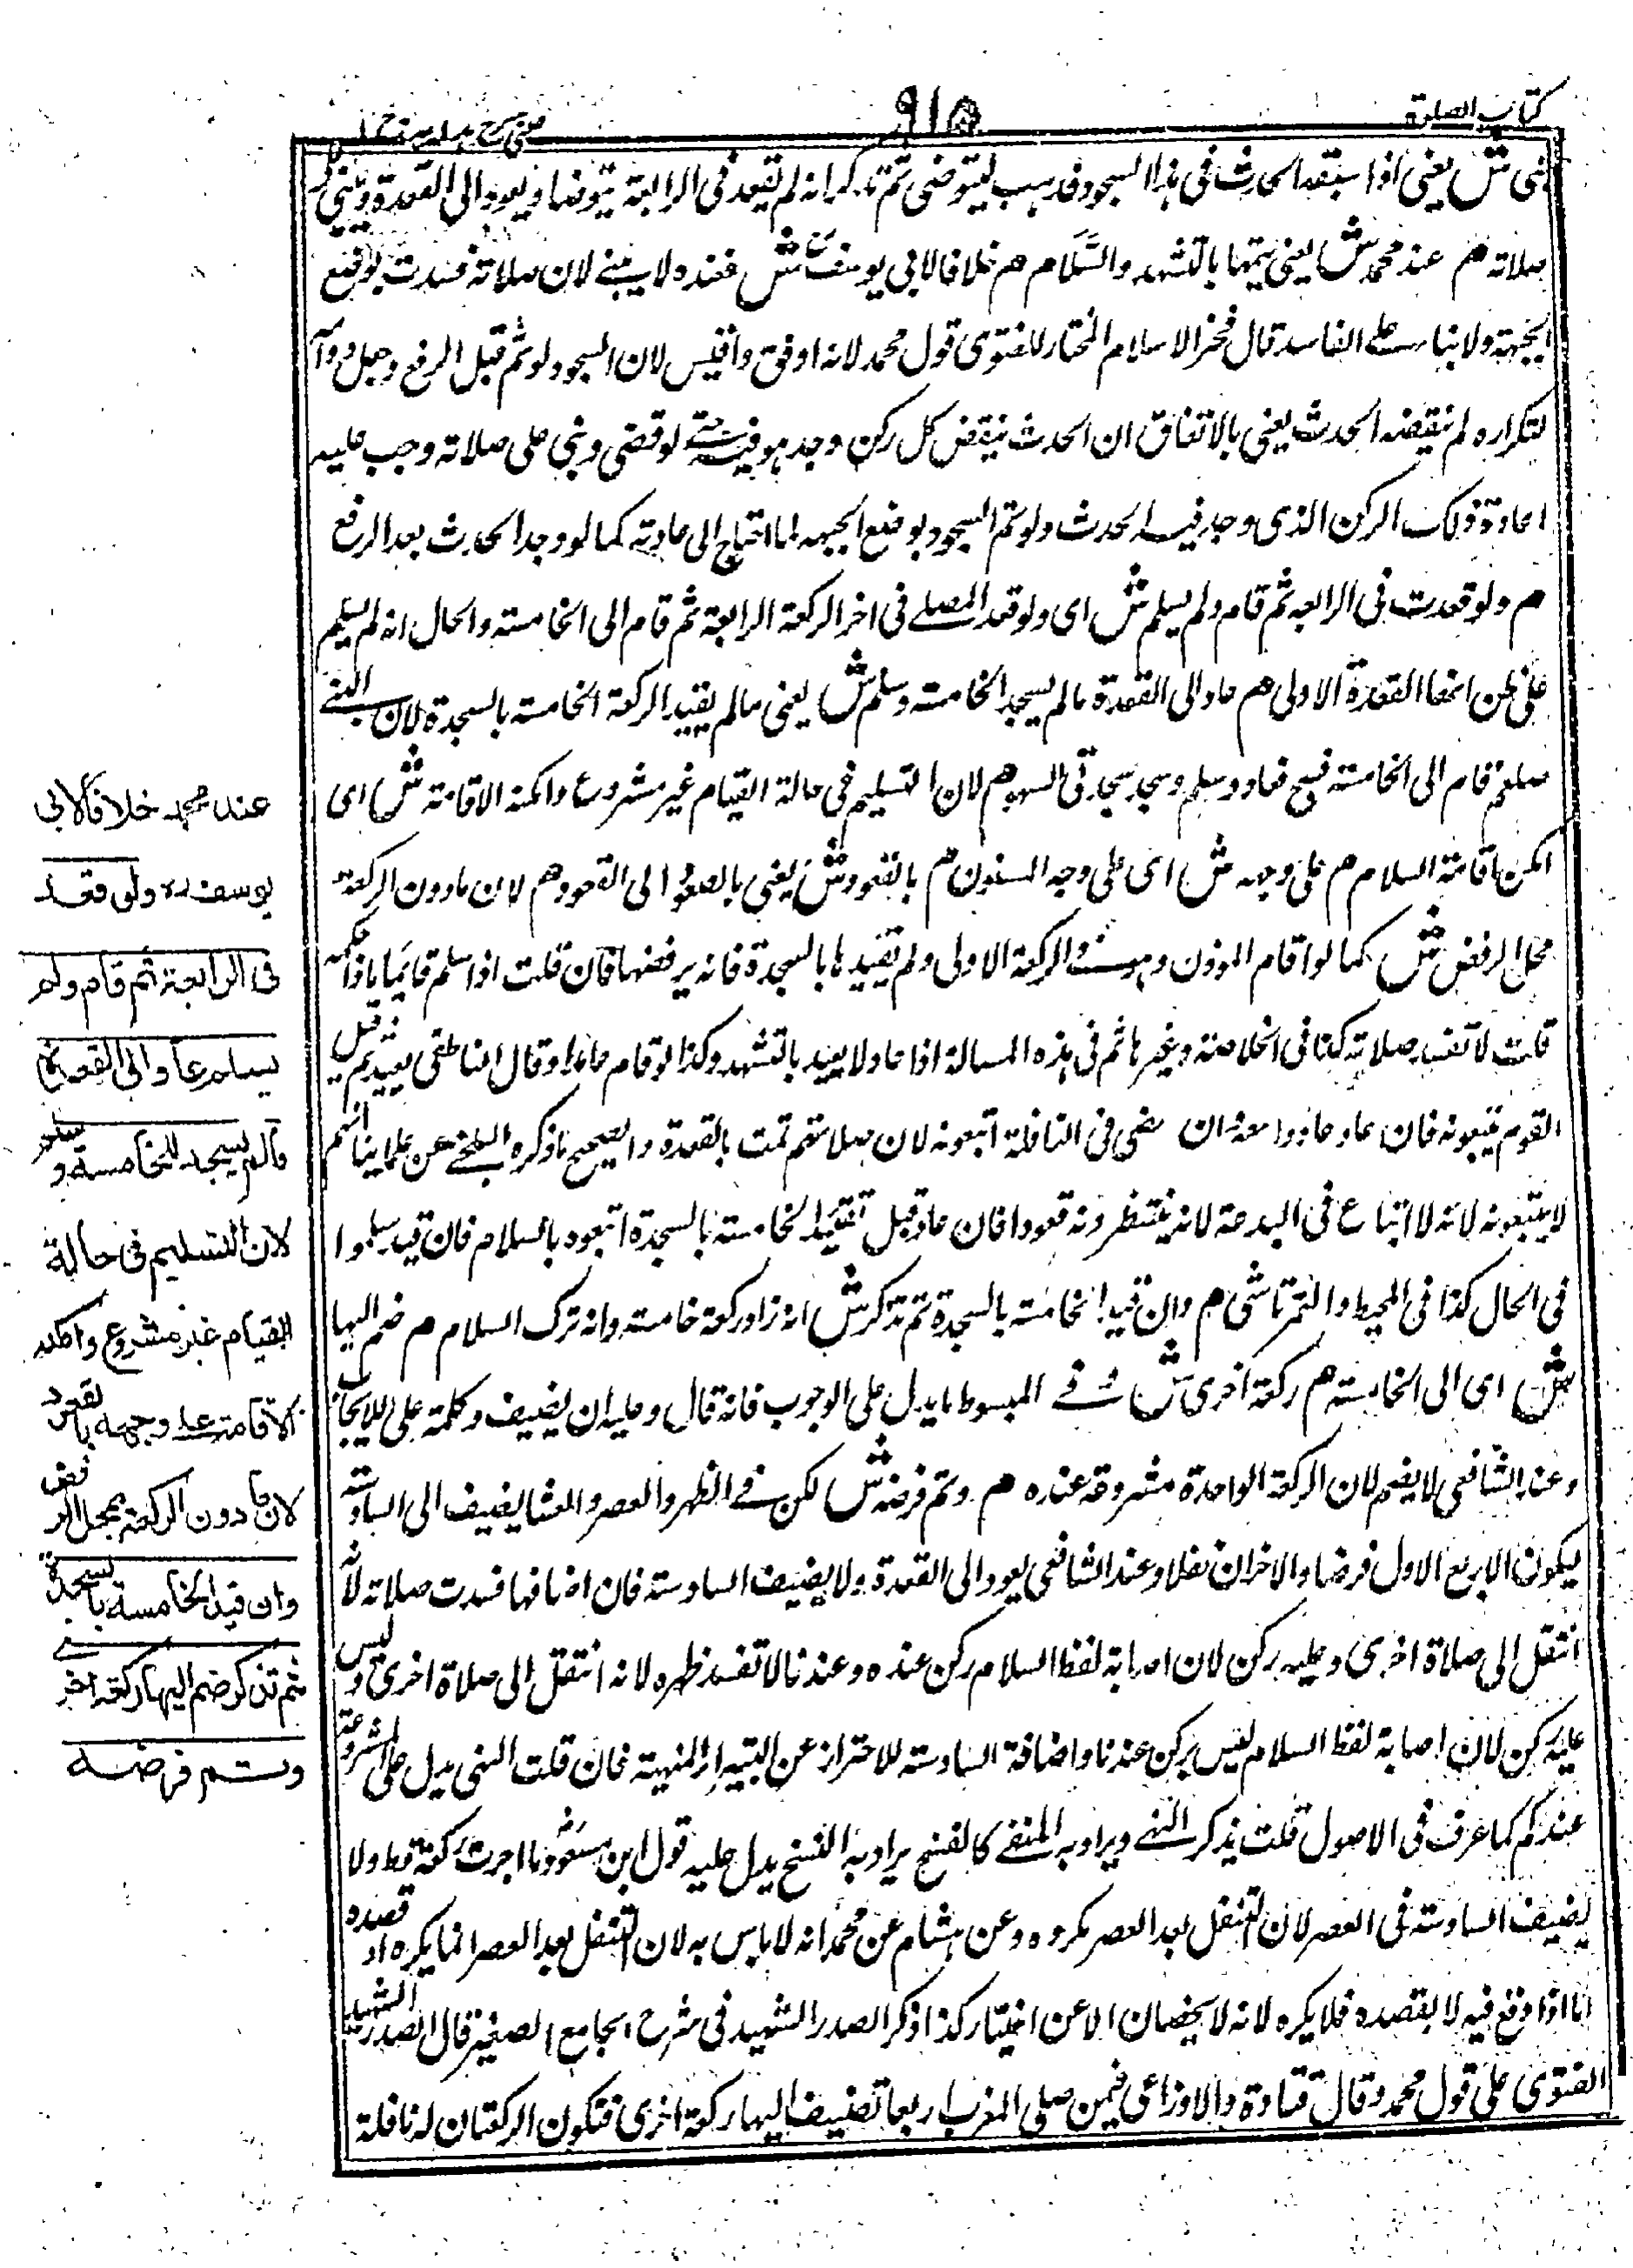 كتاب الصلوة
٩١٥
عینی شرح هدایه ج ١
بنی ش یعنی اذا سبقه الحدث فی هذا السجود فذهب لیتوضی ثم تذکر انه لم یقعد فی الرابعة یتوضأ ویعود الی القعدة ویبنی
صلاته م عند محمد ش یعنی یتمها بالتشهد والسلام م خلافا لابی یوسف ش فعنده لا یبنی لان صلاته فسدت بوضع
الجبهة ولا بناء علی الفاسد قال فخر الاسلام المختار للفتوی قول محمد لانه اوفق واقیس لان السجود لو تم قبل الرفع وجعل دوامه
لتکراره لم ینقضه الحدث یعنی بالاتفاق ان الحدث ینقض کل رکن وجد هو فیه حتی لو قضی وبنی علی صلاته وجب علیه
اعادة ذلک الرکن الذی وجد فیه الحدث ولو تم السجود بوضع الجبهه لما احتاج الی اعادته کما لو وجد الحدث بعد الرفع
م ولو قعدت فی الرابعه ثم قام ولم یسلم ش ای ولو قعد المصلی فی اخر الرکعة الرابعة ثم قام الی الخامسته والحال انه لم یسلم
علی ظن انها القعدة الاولی م عاد الی القعدة ما لم یسجد الخامسته وسلم ش یعنی ما لم یقید الرکعة الخامسته بالسجدة لان النبی
صلعم قام الی الخامسته فسبح فعاد وسلم وسجد سجدتی السهو م لان التسلیم فی حالة القیام غیر مشروع وامکنه الاقامته ش ای
امکن اقامتة السلام م علی وجهه ش ای علی وجه المسنون م بالقعود ش یعنی بالعود الی القعود م لان ما دون الرکعة
محل الرفض ش کما لو اقام الموذن وهو فی الرکعة الاولی ولم یقیدها بالسجدة فانه یرفضها فان قلت اذا سلم قائما ماذا حکمه
قلت لا تفسد صلاته کذا فی الخلاصته وغیرها ثم فی هذه المسالة اذا عاد لا یعید بالتشهد وکذا لو قام عامدا وقال الناطفی یعید ثم قیل
القوم یتبعونه فان عاد عادوا معه وان مضی فی النافلة اتبعونه لان صلاتهم تمت بالقعدة والصحیح ما ذکره البلخی عن علماینا انهم
لا یتبعونه لانه لا اتباع فی البدعة لانه ینتظرونه قعودا فان عاد قبل تقیید الخامسته بالسجدة اتبعوه بالسلام فان قید سلموا
فی الحال کذا فی المحیط والتمرتاشی م وان قید الخامسة بالسجدة ثم تذکر ش انه زاد رکعة خامسته وانه ترک السلام م ضم الیها
ش ای الی الخامسته م رکعة اخری ش و فی المبسوط ما یدل علی الوجوب فانه قال وعلیه ان یضیف وکلمة علی للایجاب
وعند الشافعی لا یضم لان الرکعة الواحدة مشروعة عنده م وتم فرضه ش لکن فی الظهر والعصر والعشا یضیف الی السادسته
لیکون الاربع الاول فرضا والاخران نفلا وعند الشافعی یعود الی القعدة ولا یضیف السادسته فان اضافها فسدت صلاته لانه
انتقل الی صلاة اخری وعلیه رکن لان اصابة لفظ السلام رکن عنده وعندنا لا تفسد ظهره لانه انتقل الی صلاة اخری ولیس
علیه رکن لان اصابة لفظ السلام لیس برکن عندنا واضافة السادسته للاحتراز عن البتیراء المنهیة فان قلت النهی یدل علی المشروعیة
عندکم کما عرف فی الاصول قلت یذکر النهی ویراد به المنفی کالفسخ یراد به النسخ یدل علیه قول ابن مسعود ما اجزت رکعة قط ولا
یضیف السادسته فی العصر لان التنفل بعد العصر مکروه وعن هشام عن محمد انه لا باس به لان التنفل بعد العصر انما یکره اذ قصده
اما اذا وقع فیه لا بقصده فلا یکره لانه لا یخصان الا عن اختیار کذا ذکر الصدر الشهید فی شرح الجامع الصغیر قال الصدر الشهید
الفتوی علی قول محمد وقال قتادة والاوزاعی فیمن صلی المغرب اربعا تضییف الیها رکعة اخری فتکون الرکعتان له نافلة
عند محمد خلافا لابی
یوسف ره ولو قعد
فی الرابعة ثم قام ولم
یسلم عاد الی القعدة
ما لم یسجد للخامسة وسلم
لان التسلیم فی حالة
القیام غیر مشروع وامکنه
الاقامة علی وجهه بالقعود
لان ما دون الرکعة بمحل الرفض
وان قید الخامسة بالسجدة
ثم تذکر ضم الیها رکعة اخری
وتم فرضه